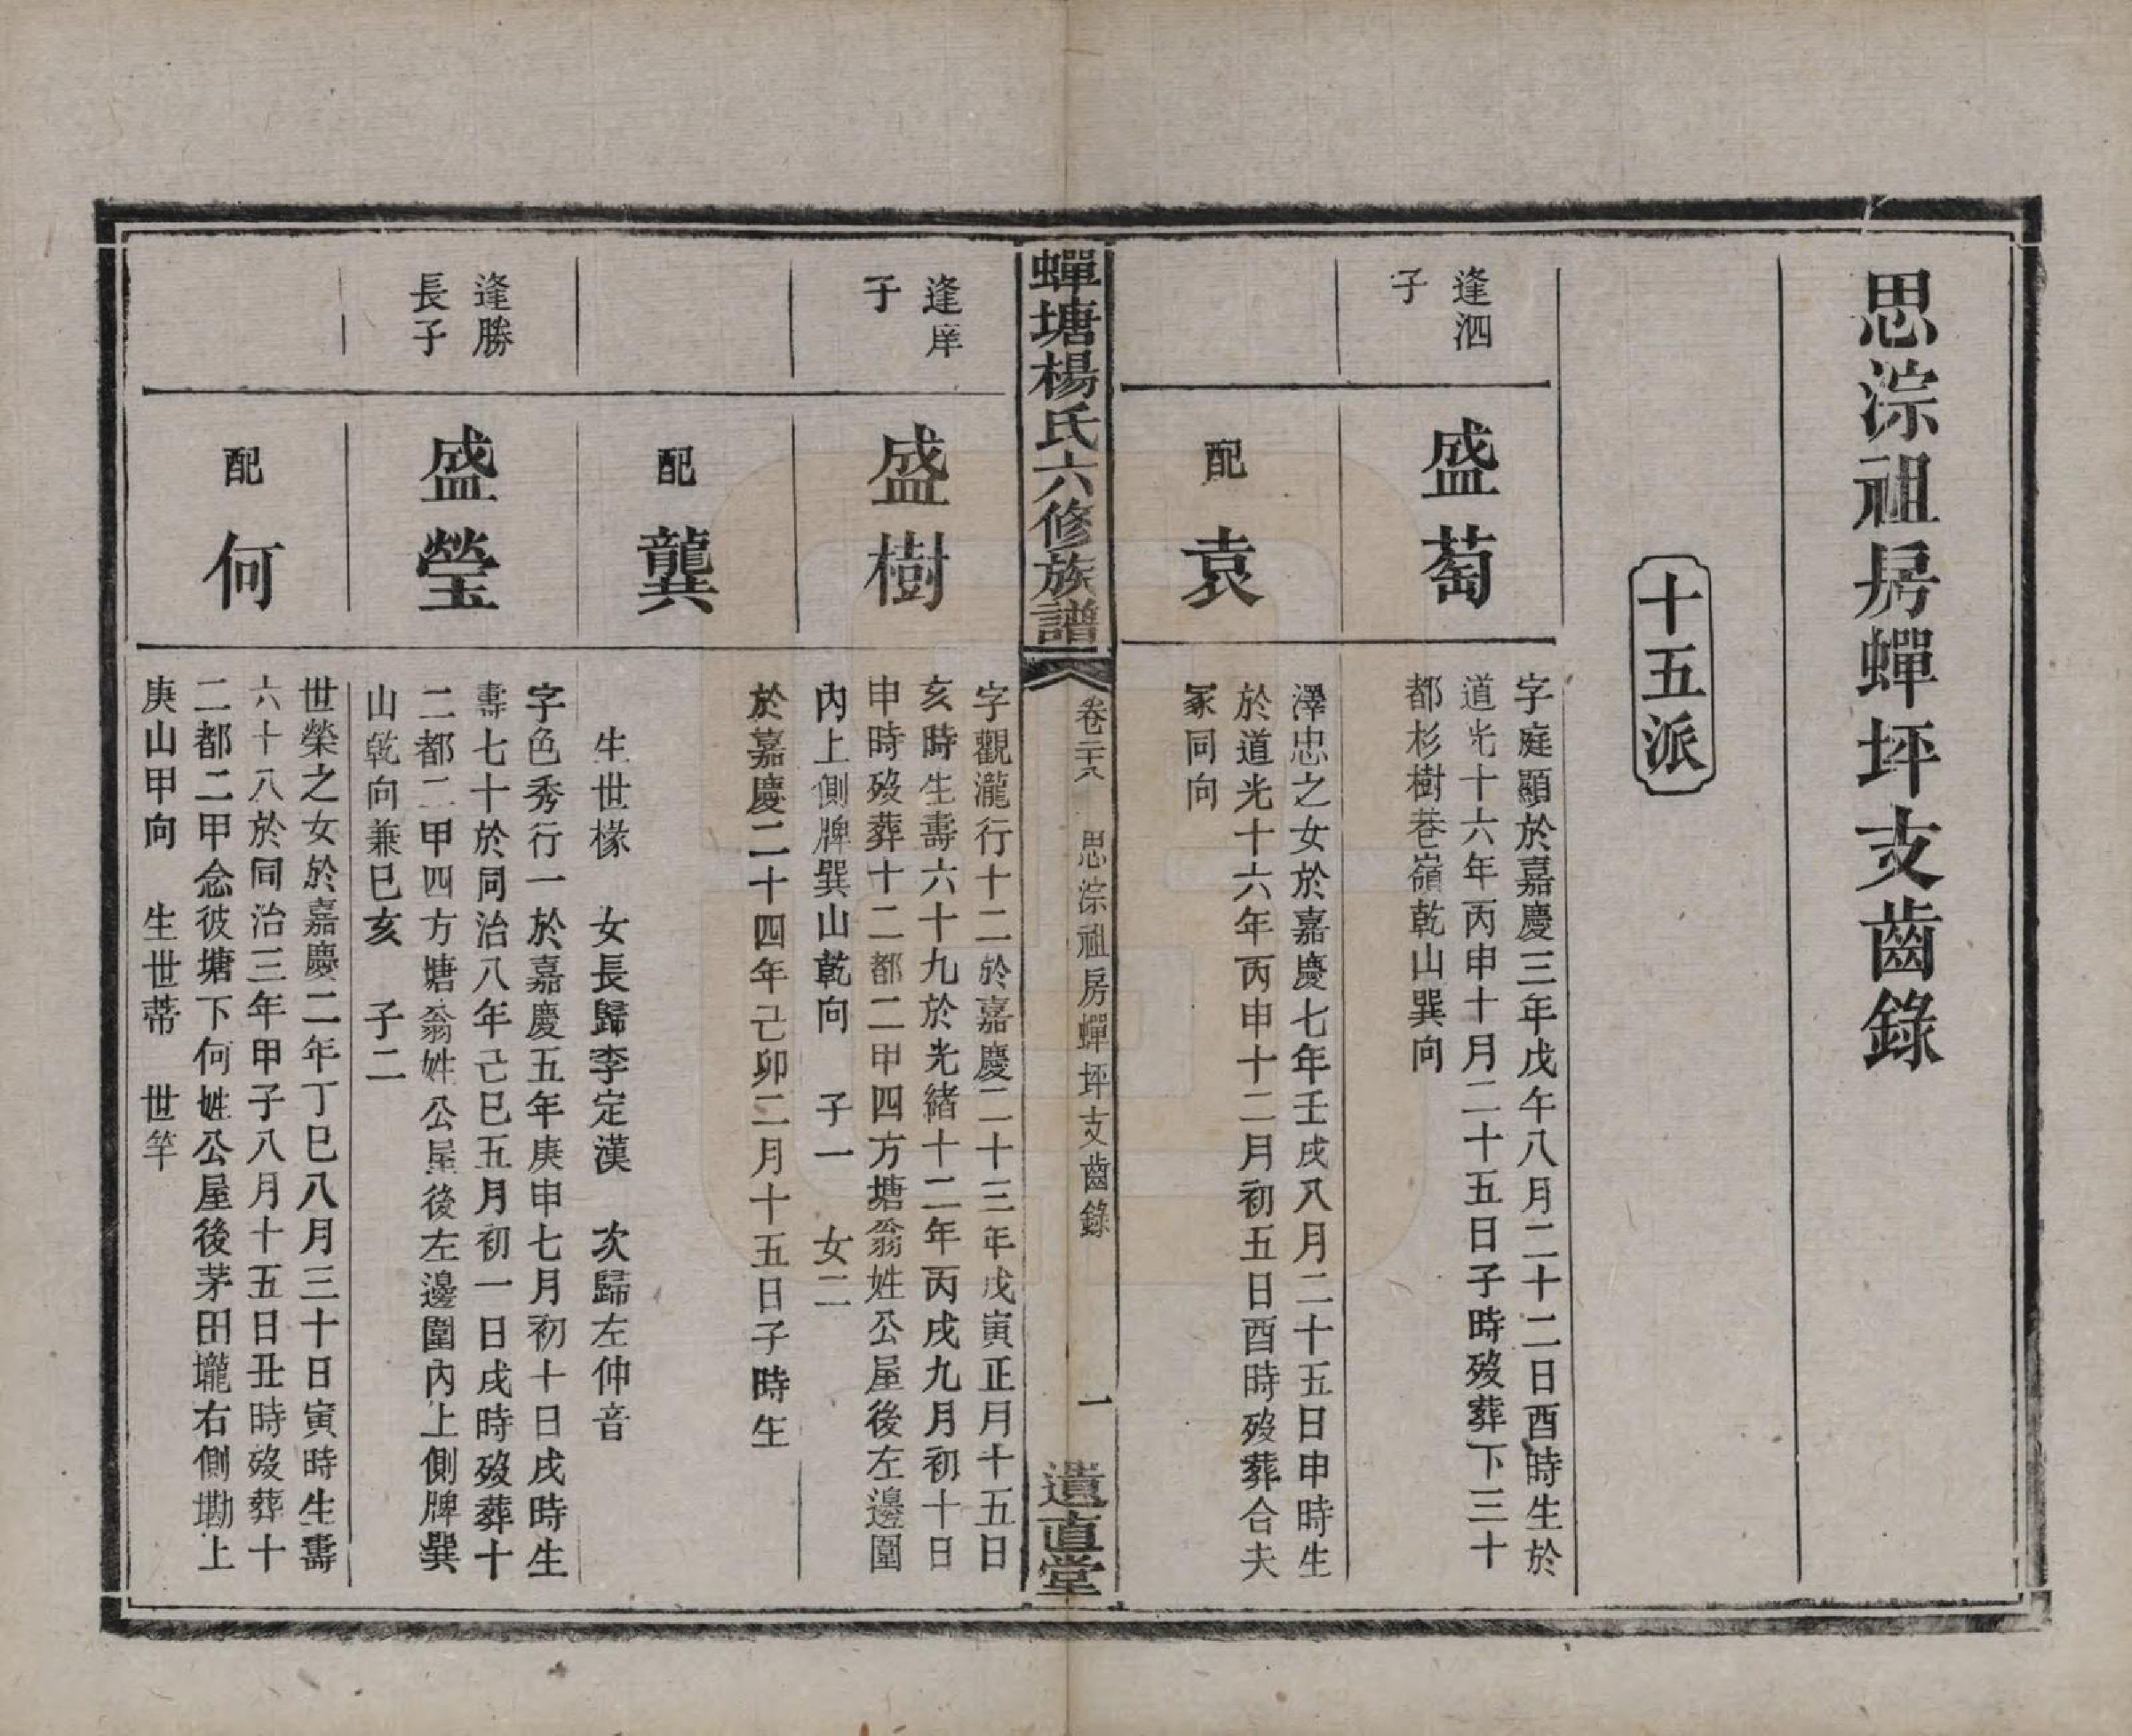 思淙祖房蟬坪支齒錄
十五派
逢泗
子
盛萄
字庭顯於嘉慶三年戊午八月二十二日酉時生於
道光十六年丙申十月二十五日子時歿葬下三十
都杉樹巷嶺乾山巽向
配袁
澤忠之女於嘉慶七年壬戌八月二十五日申時生
於道光十六年丙申十二月初五日酉時歿葬合夫
冢同向
蟬塘楊氏六修族譜
卷二十八
思淙祖房蟬坪支齒錄
一
遺直堂
逢庠
子
盛樹
字觀瀧行十二於嘉慶二十三年戊寅正月十五日
亥時生壽六十九於光緒十二年丙戌九月初十日
申時歿葬十二都二甲四方塘翁姓公屋後左邊圍
內上側牌巽山乾向 子一 女二
配龔
於嘉慶二十四年己卯二月十五日子時生
生世椽 女長歸李定漢 次歸左仲音
逢勝
長子
盛瑩
字色秀行一於嘉慶五年庚申七月初十日戌時生
壽七十於同治八年己巳五月初一日戌時歿葬十
二都二甲四方塘翁姓公屋後左邊圍內上側牌巽
山乾向兼巳亥 子二
配何
世榮之女於嘉慶二年丁巳八月三十日寅時生壽
六十八於同治三年甲子八月十五日丑時歿葬十
二都二甲念彼塘下何姓公屋後茅田壠右側墈上
庚山甲向 生世蒂 世竿